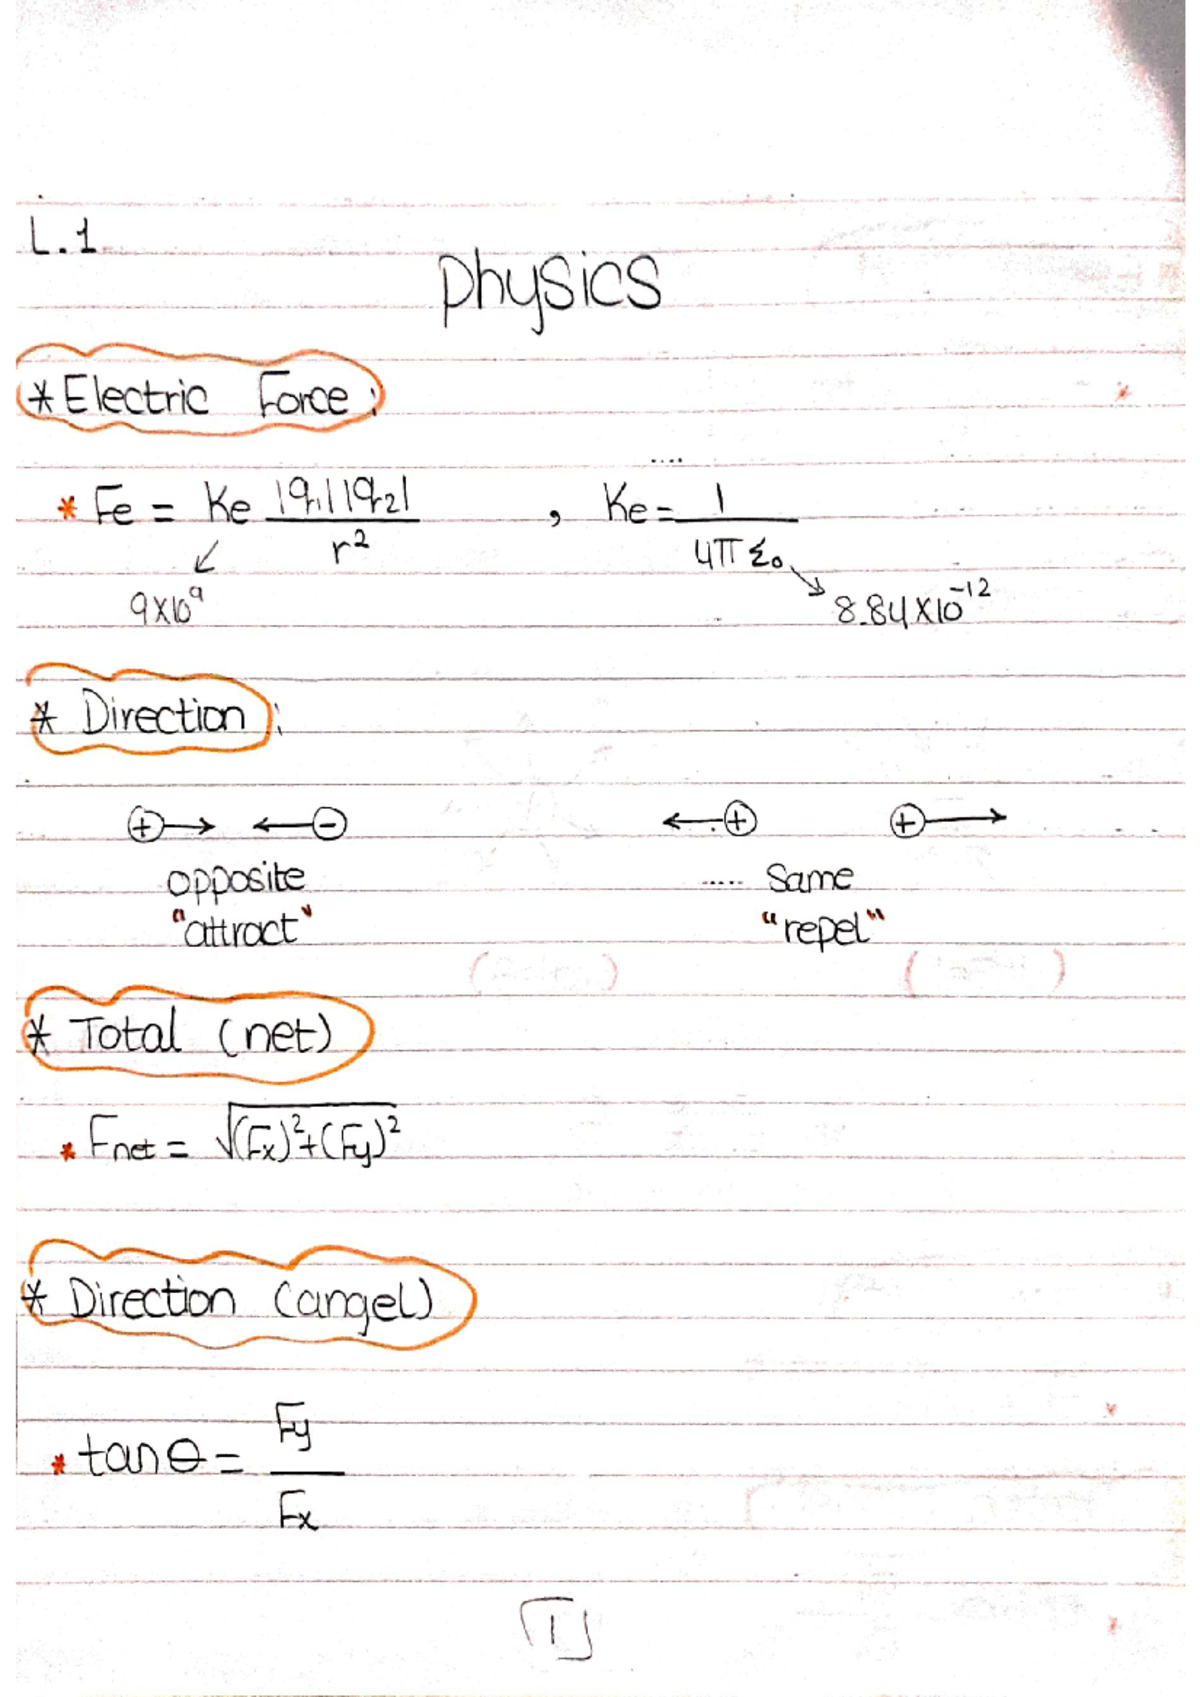 L.1
Physics
* Electric Force:
* Fe = Ke |q1||q2| / r² , Ke = 1 / 4π ε0
9x10⁹
8.84x10⁻¹²
* Direction:
(+)→ ←(-) ←(+) (+)→
opposite Same
"attract" "repel"
* Total (net)
* Fnet = √(Fx)²+(Fy)²
* Direction (angel)
* tanθ = Fy / Fx
1